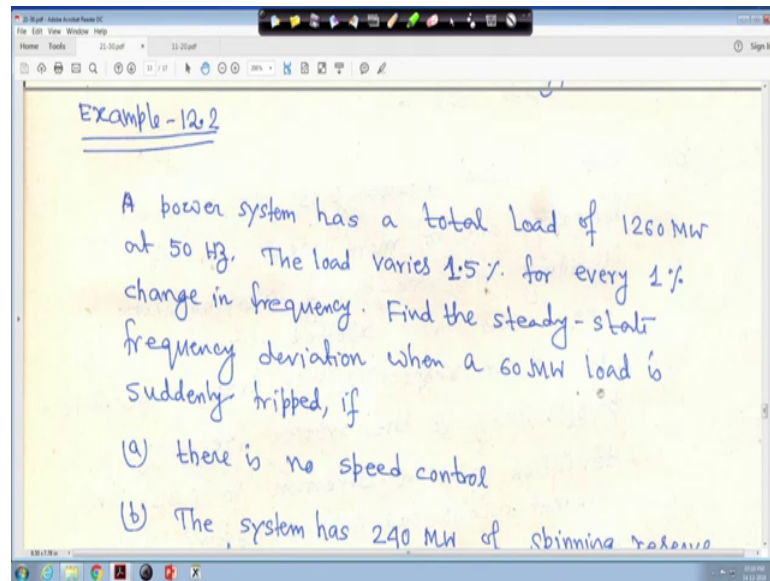 21-30.pdf - Adobe Acrobat Reader DC
File Edit View Window Help
Home Tools 21-30.pdf × 11-20.pdf Sign In
13 / 17 200%
Example-12.2
A power system has a total load of 1260 MW
at 50 Hz. The load varies 1.5% for every 1%
change in frequency. Find the steady-state
frequency deviation when a 60 MW load is
suddenly tripped, if
(a) there is no speed control
(b) The system has 240 MW of spinning reserve